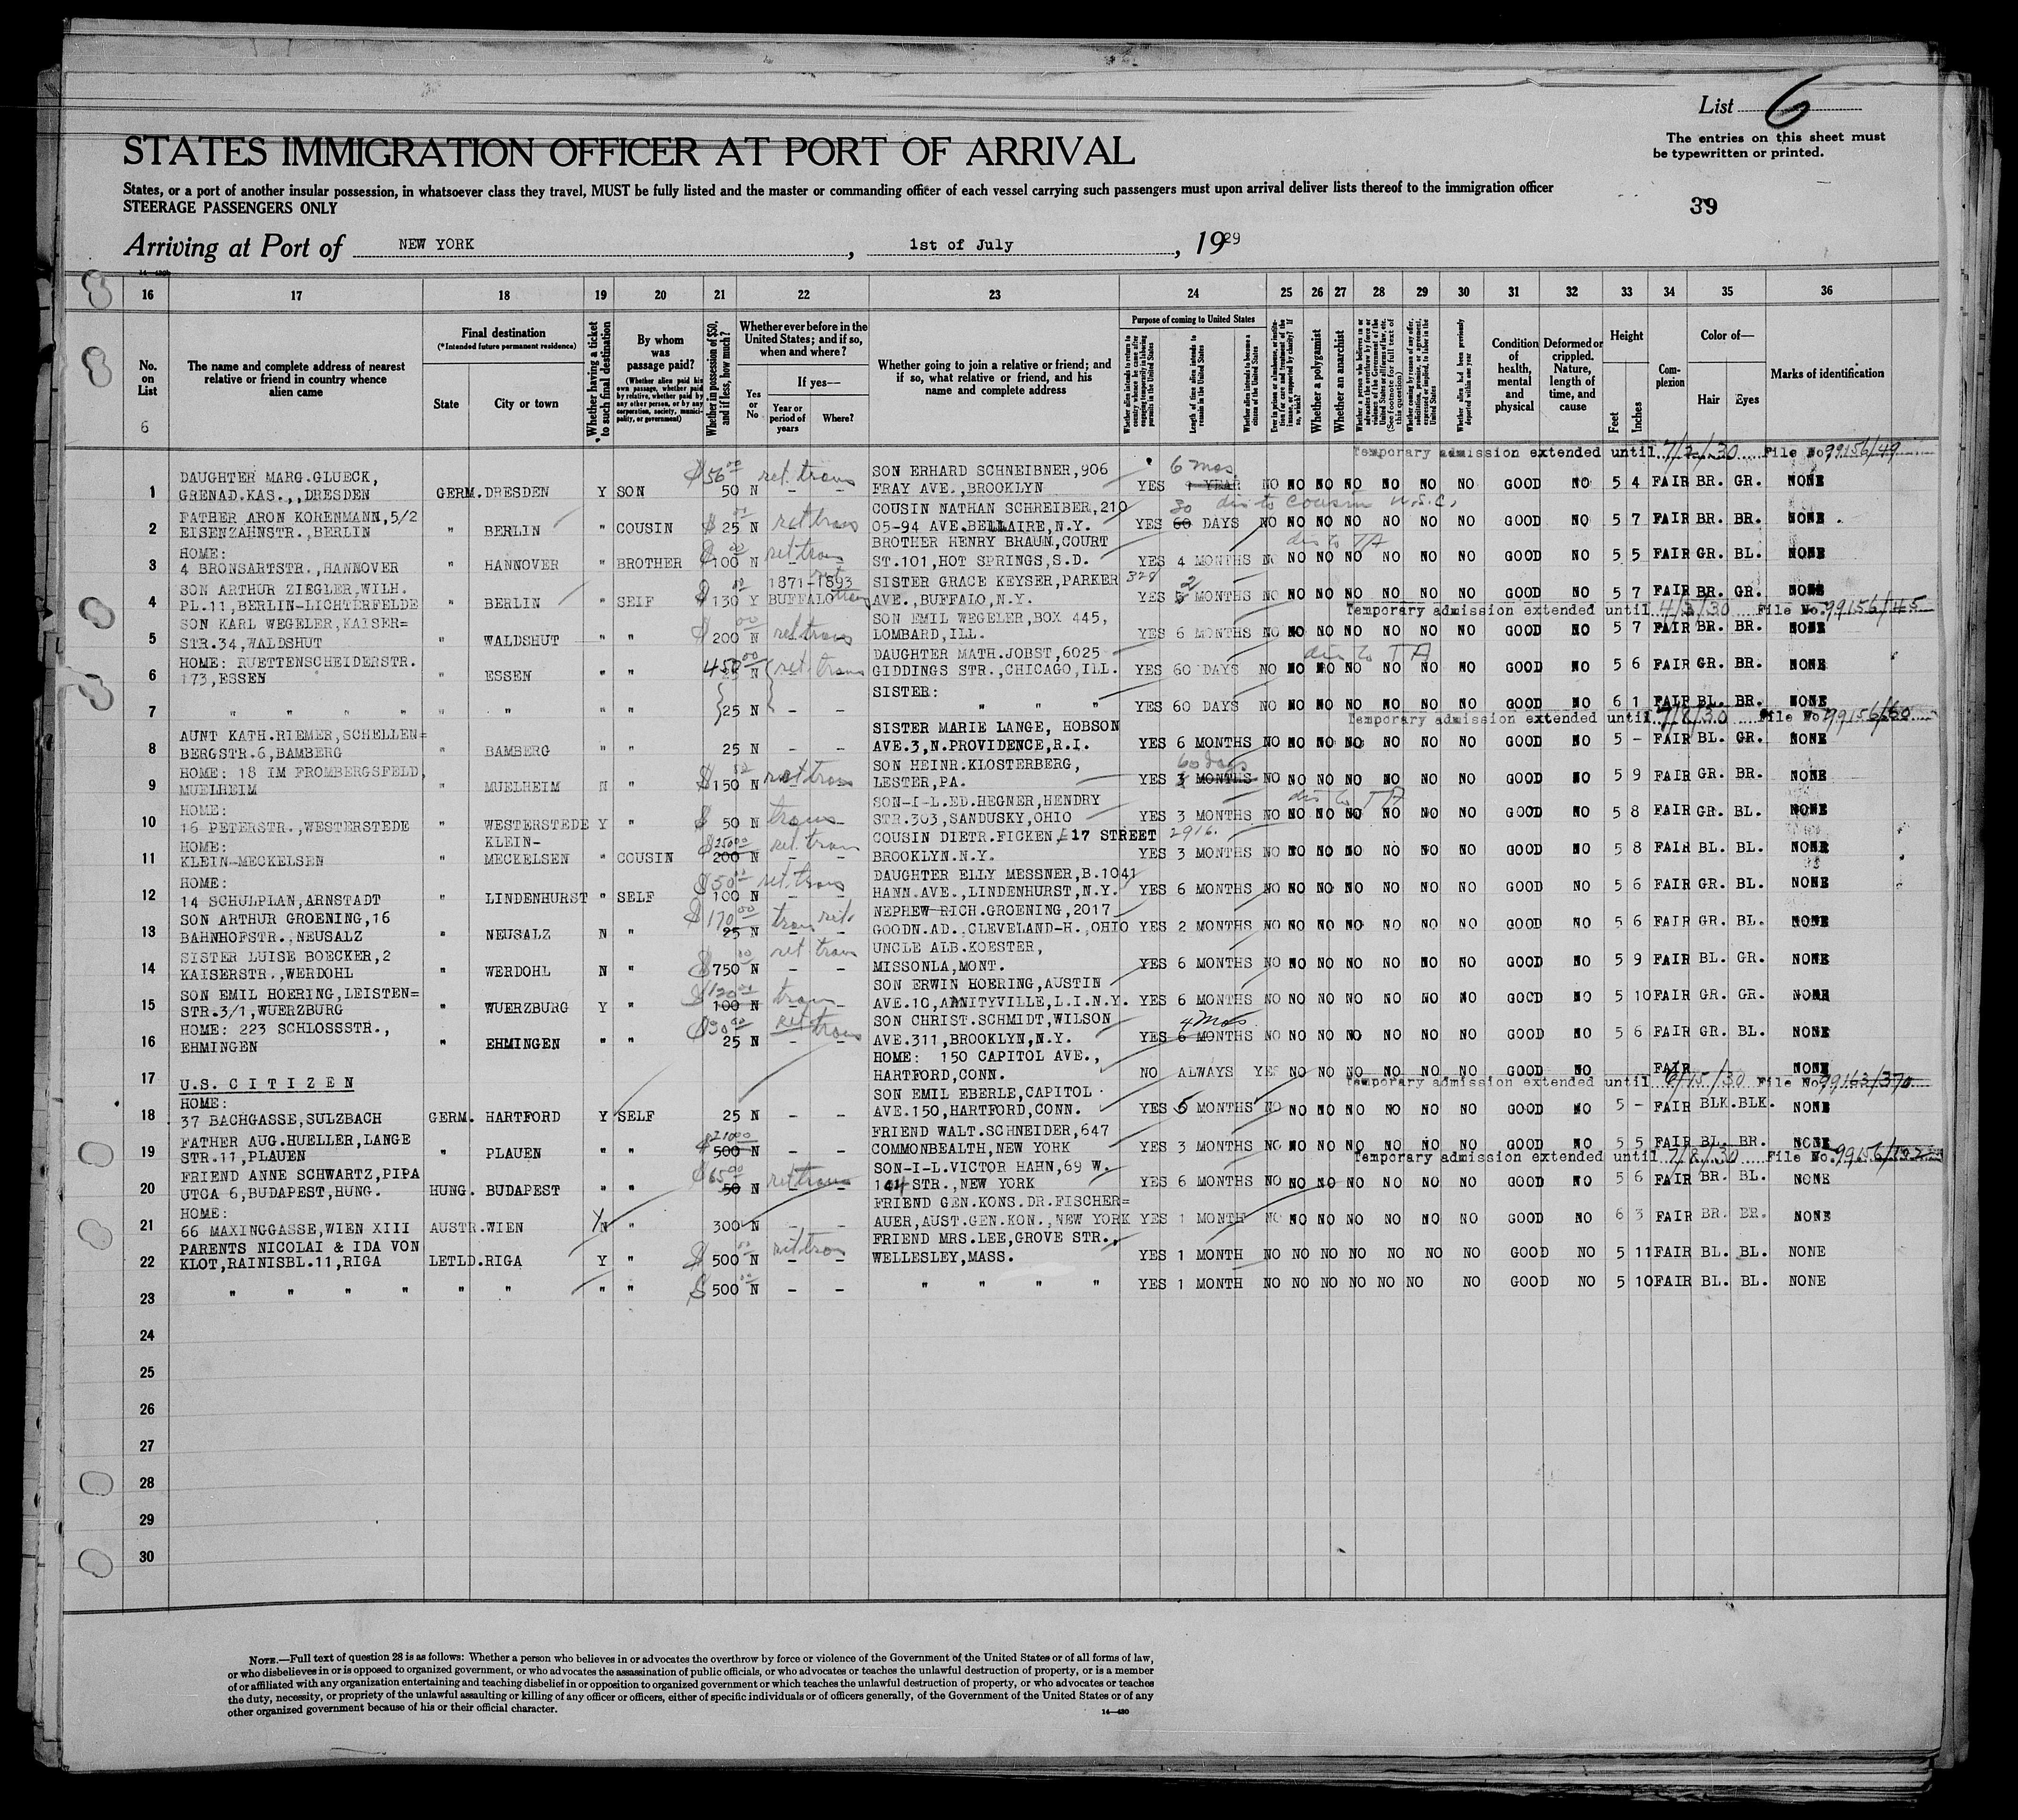 List 6
The entries on this sheet must
be typewritten or printed.
STATES IMMIGRATION OFFICER AT PORT OF ARRIVAL
States, or a port of another insular possession, in whatsoever class they travel, MUST be fully listed and the master or commanding officer of each vessel carrying such passengers must upon arrival deliver lists thereof to the immigration officer
STEERAGE PASSENGERS ONLY
39
Arriving at Port of NEW YORK, 1st of July, 1929
16 17 18 19 20 21 22 23 24 25 26 27 28 29 30 31 32 33 34 35 36
No. on List
6
The name and complete address of nearest relative or friend in country whence alien came
Final destination
(*Intended future permanent residence)
State
City or town
*Whether having a ticket to such final destination
By whom was passage paid?
(Whether alien paid his own passage, whether paid by relative, whether paid by any other person, or by any corporation, society, municipality, or government)
Whether in possession of $50, and if less, how much?
Whether ever before in the United States; and if so, when and where?
Yes or No
If yes—
Year or period of years
Where?
Whether going to join a relative or friend; and if so, what relative or friend, and his name and complete address
Purpose of coming to United States
Length of time alien intends to remain in the United States
Whether alien intends to become a citizen of the United States
Whether a polygamist
Whether an anarchist
Condition of health, mental and physical
Deformed or crippled. Nature, length of time, and cause
Height
Feet
Inches
Complexion
Color of—
Hair
Eyes
Marks of identification
Temporary admission extended until 7/2/30 File No. 99156/49
DAUGHTER MARG.GLUECK, $56 00 ret. trans SON ERHARD SCHNEIBNER,906 6 mos
1 GRENAD.KAS.,,DRESDEN GERM. DRESDEN Y SON 50 N – – FRAY AVE.,BROOKLYN YES 1 YEAR NO NO NO NO NO NO NO GOOD NO 5 4 FAIR BR. GR. NONE
FATHER ARON KORENMANN,5/2 ret trans COUSIN NATHAN SCHREIBER,210 30 dis to cousin U.S.C.
2 EISENZAHNSTR.,BERLIN " BERLIN " COUSIN $ 25 N 05-94 AVE.BELLAIRE,N.Y. YES 60 DAYS NO NO NO NO NO NO NO GOOD NO 5 7 FAIR BR. BR. NONE
HOME: ret trans BROTHER HENRY BRAUN,COURT dis to TA
3 4 BRONSARTSTR.,HANNOVER " HANNOVER " BROTHER $100 N ST.101,HOT SPRINGS,S.D. YES 4 MONTHS NO NO NO NO NO NO NO GOOD NO 5 5 FAIR GR. BL. NONE
SON ARTHUR ZIEGLER,WILH. 1871-1893 ret SISTER GRACE KEYSER,PARKER 328 2
4 PL.11,BERLIN-LICHTERFELDE " BERLIN " SELF $ 130 Y BUFFALO trans AVE.,BUFFALO,N.Y. YES MONTHS NO NO NO NO NO NO NO GOOD NO 5 7 FAIR BR. GR. NONE
Temporary admission extended until 4/3/30 File No. 99156/165
SON KARL WEGELER,KAISER= ret trans SON EMIL WEGELER,BOX 445,
5 STR.34,WALDSHUT " WALDSHUT " " $ 200 N LOMBARD,ILL. YES 6 MONTHS NO NO NO NO NO NO NO GOOD NO 5 7 FAIR BR. BR. NONE
HOME: RUETTENSCHEIDERSTR. 450 00 ret trans DAUGHTER MATH.JOBST,6025 dis to TA
6 173,ESSEN " ESSEN " " 25 N GIDDINGS STR.,CHICAGO,ILL. YES 60 DAYS NO NO NO NO NO NO NO GOOD NO 5 6 FAIR GR. BR. NONE
SISTER:
7 " " " " " " " " 25 N – – " " " YES 60 DAYS NO NO NO NO NO NO NO GOOD NO 6 1 FAIR BL. BR. NONE
Temporary admission extended until 7/8/30 File No. 99156/60
AUNT KATH.RIEMER,SCHELLEN= SISTER MARIE LANGE, HOBSON
8 BERGSTR.6,BAMBERG " BAMBERG " " 25 N – – AVE.3,N.PROVIDENCE,R.I. YES 6 MONTHS NO NO NO NO NO NO NO GOOD NO 5 – FAIR BL. GR. NONE
HOME: 18 IM FROMBERGSFELD, ret trans SON HEINR.KLOSTERBERG, 60 days
9 MUELHEIM " MUELHEIM N " $150 N LESTER,PA. YES 3 MONTHS NO NO NO NO NO NO NO GOOD NO 5 9 FAIR GR. BR. NONE
HOME: trans SON-I-L.ED.HEGNER,HENDRY dis to TA
10 16 PETERSTR.,WESTERSTEDE " WESTERSTEDE Y " $ 50 N – STR.303,SANDUSKY,OHIO YES 3 MONTHS NO NO NO NO NO NO NO GOOD NO 5 8 FAIR GR. BL. NONE
HOME: KLEIN- $250 00 ret. trans COUSIN DIETR.FICKEN,E 17 STREET 2916.
11 KLEIN-MECKELSEN " MECKELSEN " COUSIN 200 N – – BROOKLYN.N.Y. YES 3 MONTHS NO NO NO NO NO NO NO GOOD NO 5 8 FAIR BL. BL. NONE
HOME: $50 ret trans DAUGHTER ELLY MESSNER,B.1041
12 14 SCHULPLAN,ARNSTADT " LINDENHURST " SELF 100 N – – HANN.AVE.,LINDENHURST,N.Y. YES 6 MONTHS NO NO NO NO NO NO NO GOOD NO 5 6 FAIR GR. BL. NONE
SON ARTHUR GROENING,16 $170 00 trans ret. NEPHEW RICH.GROENING,2017
13 BAHNHOFSTR.,NEUSALZ " NEUSALZ N " 25 N – – GOODN.AD.,CLEVELAND-H.,OHIO YES 2 MONTHS NO NO NO NO NO NO NO GOOD NO 5 6 FAIR GR. BL. NONE
SISTER LUISE BOECKER,2 ret trans UNCLE ALB.KOESTER,
14 KAISERSTR.,WERDOHL " WERDOHL N " $750 N – – MISSONLA,MONT. YES 6 MONTHS NO NO NO NO NO NO NO GOOD NO 5 9 FAIR BL. GR. NONE
SON EMIL HOERING,LEISTEN= $120 00 trans SON ERWIN HOERING,AUSTIN
15 STR.3/1,WUERZBURG " WUERZBURG Y " 100 N AVE.10,AMNITYVILLE,L.I.N.Y. YES 6 MONTHS NO NO NO NO NO NO NO GOOD NO 5 10 FAIR GR. GR. NONE
HOME: 223 SCHLOSSSTR., ret trans SON CHRIST.SCHMIDT,WILSON 4 mos
16 EHMINGEN " EHMINGEN " " 25 N – – AVE.311,BROOKLYN,N.Y. YES 6 MONTHS NO NO NO NO NO NO NO GOOD NO 5 6 FAIR GR. BL. NONE
HOME: 150 CAPITOL AVE.,
17 U.S. C I T I Z E N HARTFORD,CONN. NO ALWAYS YES NO NO NO NO NO NO GOOD NO FAIR NONE
Temporary admission extended until 6/15/30 File No. 99163/370
HOME: SON EMIL EBERLE,CAPITOL
18 37 BACHGASSE,SULZBACH GERM. HARTFORD Y SELF 25 N – – AVE.150,HARTFORD,CONN. YES 6 MONTHS NO NO NO NO NO NO NO GOOD NO 5 – FAIR BLK.BLK. NONE
FATHER AUG.HUELLER,LANGE $210 00 FRIEND WALT.SCHNEIDER,647
19 STR.11,PLAUEN " PLAUEN " " 500 N – – COMMONBEALTH,NEW YORK YES 3 MONTHS NO NO NO NO NO NO NO GOOD NO 5 5 FAIR BL. BR. NONE
Temporary admission extended until 7/8/30 File No. 99156/
FRIEND ANNE SCHWARTZ,PIPA $65 00 ret trans SON-I-L.VICTOR HAHN,69 W.
20 UTCA 6,BUDAPEST,HUNG. HUNG. BUDAPEST " " 50 N – – STR.,NEW YORK YES 6 MONTHS NO NO NO NO NO NO NO GOOD NO 5 6 FAIR BR. BL. NONE
HOME: FRIEND GEN.KONS.DR.FISCHER=
21 66 MAXINGGASSE,WIEN XIII AUSTR. WIEN N " 300 N – – AUER,AUST.GEN.KON.,NEW YORK YES 1 MONTH NO NO NO NO NO NO NO GOOD NO 6 3 FAIR BR. BR. NONE
PARENTS NICOLAI & IDA VON ret trans FRIEND MRS.LEE,GROVE STR.,
22 KLOT,RAINISBL.11,RIGA LETLD. RIGA Y " $ 500 N – – WELLESLEY,MASS. YES 1 MONTH NO NO NO NO NO NO NO GOOD NO 5 11 FAIR BL. BL. NONE
23 " " " " " " " " $ 500 N – – " " " " YES 1 MONTH NO NO NO NO NO NO NO GOOD NO 5 10 FAIR BL. BL. NONE
24
25
26
27
28
29
30
NOTE.—Full text of question 28 is as follows: Whether a person who believes in or advocates the overthrow by force or violence of the Government of the United States or of all forms of law,
or who disbelieves in or is opposed to organized government, or who advocates the assassination of public officials, or who advocates or teaches the unlawful destruction of property, or is a member
of or affiliated with any organization entertaining and teaching disbelief in or opposition to organized government or which teaches the unlawful destruction of property, or who advocates or teaches
the duty, necessity, or propriety of the unlawful assaulting or killing of any officer or officers, either of specific individuals or of officers generally, of the Government of the United States or of any
other organized government because of his or their official character.
14—430